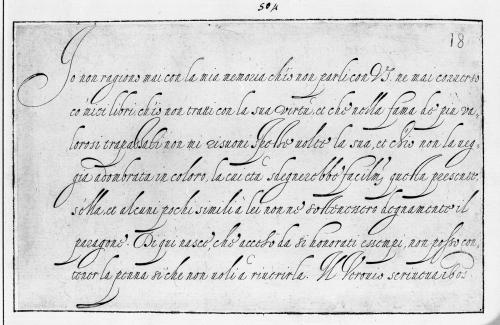 504
18
Io non ragiono mai con la mia memoria ch'io non parli con V.S. ne mai conuerso
có miei libri ch'io non tratti con la sua virtù, et che nella fama de più va-
lorosi trapassati non mi risuoni spesse uolte la sua, et ch'io non la ueg-
gia adombrata in coloro, la cui età sdegnerebbe facilm.te questa presente,
s'ella, et alcuni pochi simili à lei non ne sostenessero degnamente il
paragone. Di qui nasce, che acceso da si honorati essempi, non posso con-
tener la penna si che non uoli a riuerirla. Il Verouio scriueua